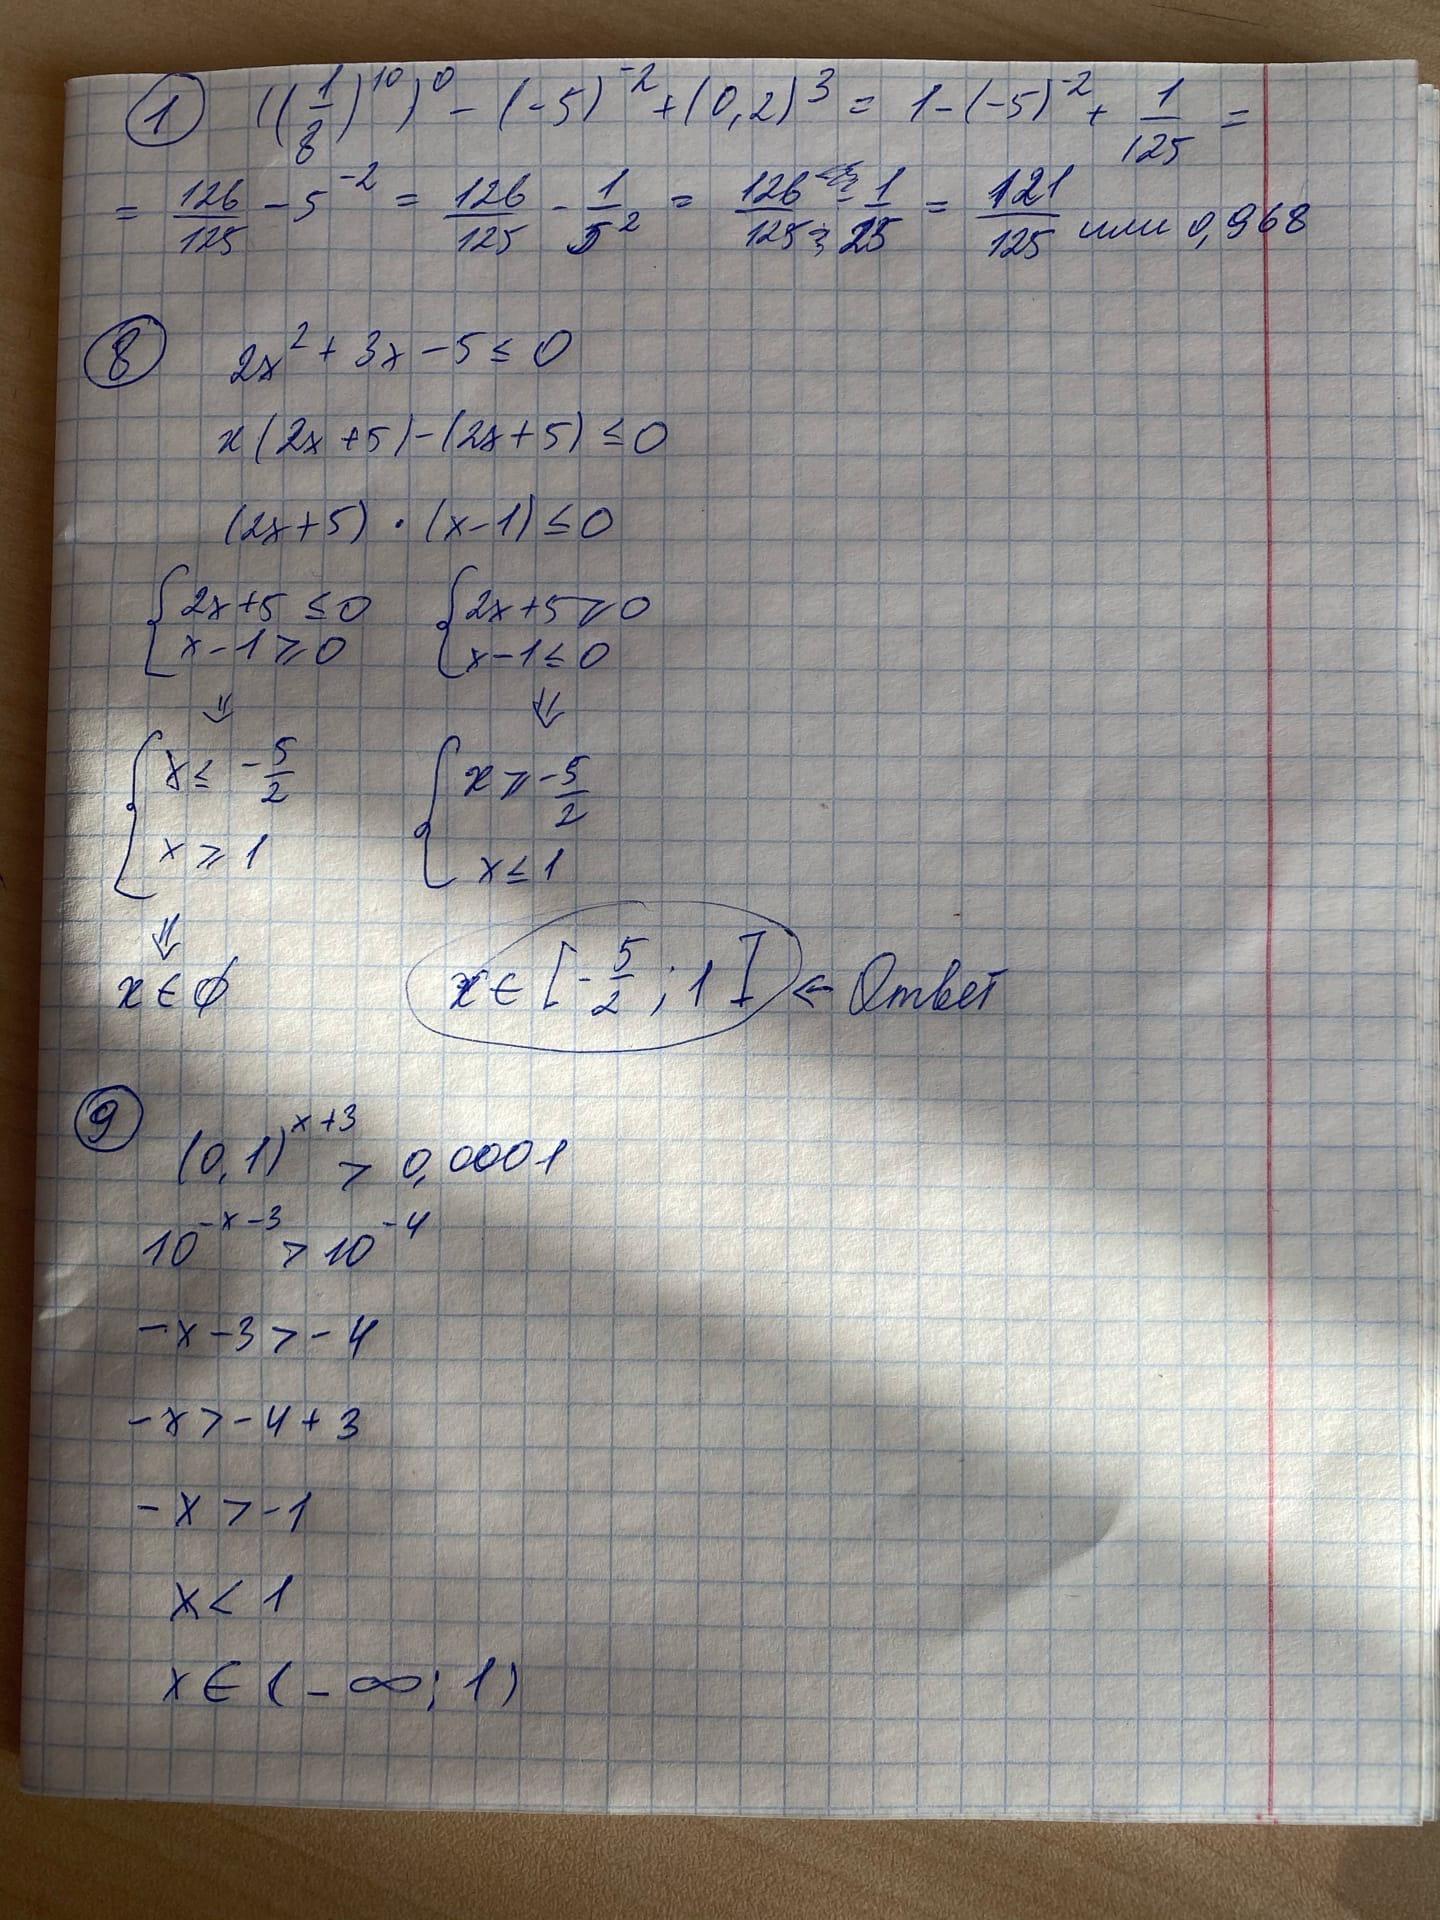 1 ((1/8)^10)^0 - (-5)^-2 + (0,2)^3 = 1 - (-5)^-2 + 1/125 =
= 126/125 - 5^-2 = 126/125 - 1/5^2 = 126/125 - 1/25 = 121/125 или 0,968
8 2x^2 + 3x - 5 ≤ 0
x(2x+5) - (2x+5) ≤ 0
(2x+5) · (x-1) ≤ 0
{ 2x+5 ≤ 0 { 2x+5 ⩾ 0
x-1 ⩾ 0 x-1 ≤ 0
⇓ ⇓
{ x ≤ -5/2 { x ⩾ -5/2
x ⩾ 1 x ≤ 1
⇓
x ∈ ∅ x ∈ [-5/2 ; 1] ← Ответ
9 (0,1)^x+3 > 0,0001
10^-x-3 > 10^-4
-x-3 > -4
-x > -4+3
-x > -1
x < 1
x ∈ (-∞; 1)